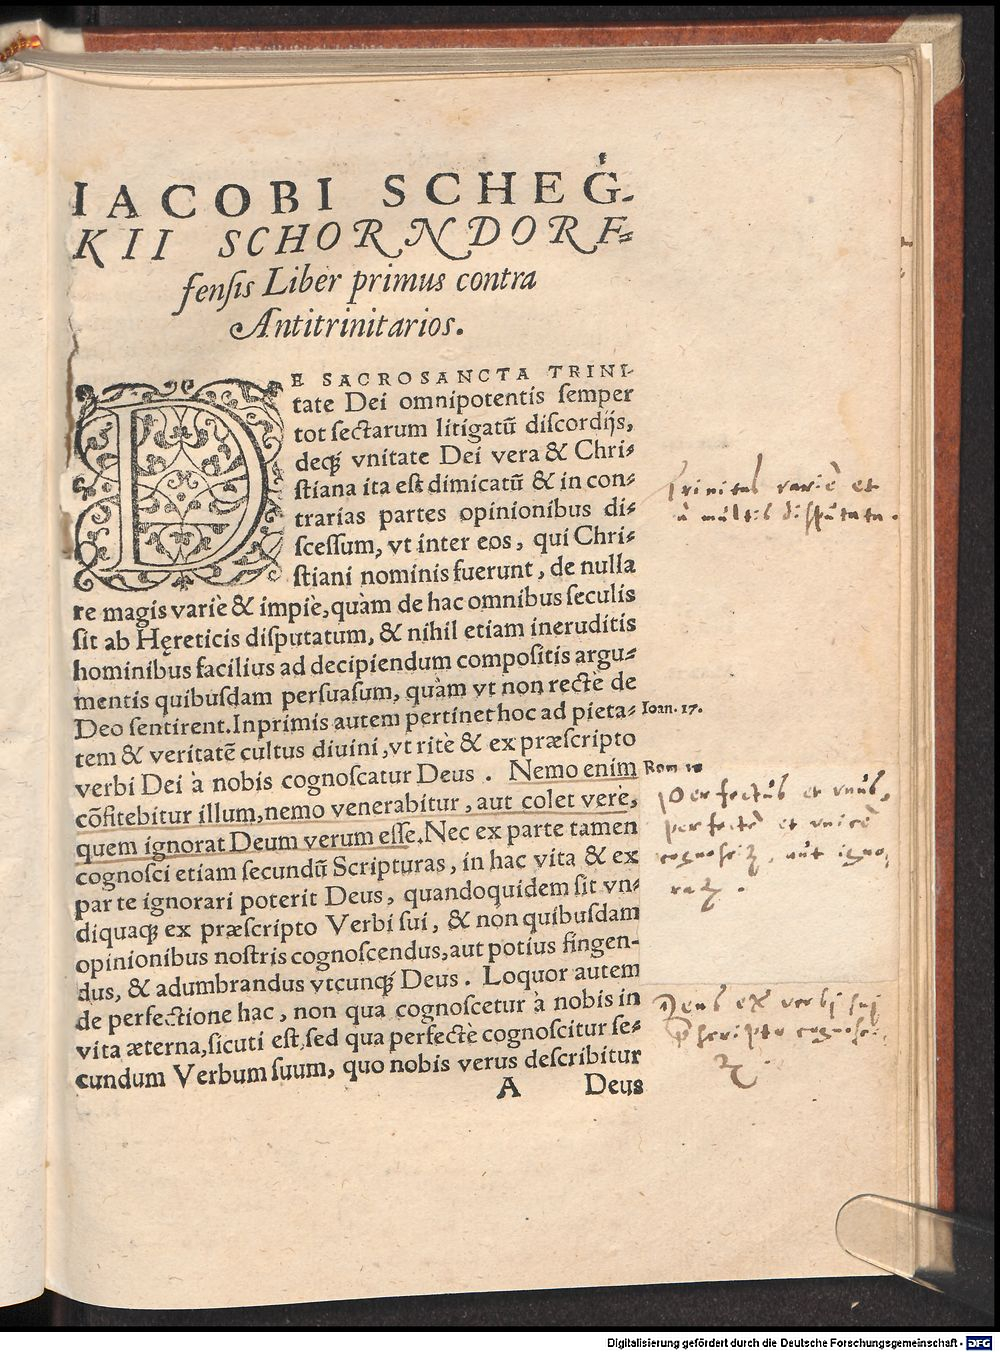 IACOBI SCHEG.
KII SCHORNDORF⸗
fenſis Liber primus contra
Antitrinitarios.
DE SACROSANCTA TRINI-
tate Dei omnipotentis ſemper
tot ſectarum litigatũ diſcordijs,
deq́; vnitate Dei vera & Chri⸗
ſtiana ita eſt dimicatũ & in con⸗
trarias partes opinionibus di⸗
ſceſſum, vt inter eos, qui Chri⸗
ſtiani nominis fuerunt, de nulla
re magis variè & impiè, quàm de hac omnibus ſeculis
ſit ab Hęreticis diſputatum, & nihil etiam ineruditis
hominibus facilius ad decipiendum compoſitis argu⸗
mentis quibuſdam perſuaſum, quàm vt non rectè de
Deo ſentirent. Inprimis autem pertinet hoc ad pieta⸗
tem & veritatẽ cultus diuini, vt ritè & ex præſcripto
verbi Dei à nobis cognoſcatur Deus. Nemo enim
cõfitebitur illum, nemo venerabitur, aut colet verè,
quem ignorat Deum verum eſſe. Nec ex parte tamen
cognoſci etiam ſecundũ Scripturas, in hac vita & ex
parte ignorari poterit Deus, quandoquidem ſit vn⸗
diquaq; ex præſcripto Verbi ſui, & non quibuſdam
opinionibus noſtris cognoſcendus, aut potius fingen-
dus, & adumbrandus vtcunq́; Deus. Loquor autem
de perfectione hac, non qua cognoſcetur à nobis in
vita æterna, ſicuti eſt, ſed qua perfectè cognoſcitur ſe⸗
cundum Verbum ſuum, quo nobis verus deſcribitur
A Deus
Trinitas variè et
à multis diſputata.
Ioan. 17.
Rom 10
Perfectus et unus,
perfectè et unicè
cognoſcitꝛ, aut igno,
ratꝛ.
Deus ex verbi ſui
p̃ſcripto cognoſci-
tꝛ.
Digitalisierung gefördert durch die Deutsche Forschungsgemeinschaft - DFG